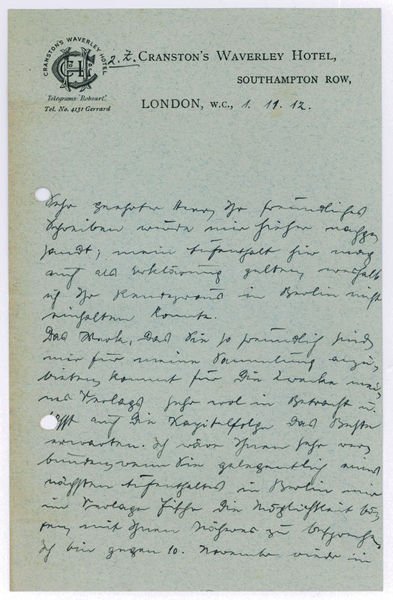 CRANSTON'S WAVERLEY HOTEL
Telegrams "Rohuart."
Tel. No. 4131 Gerrard
z. Z. CRANSTON'S WAVERLEY HOTEL,
SOUTHAMPTON ROW,
LONDON, W.C., 1. 11. 12.
Sehr geehrter Herr, Ihr freundliches
Schreiben wurde mir hieher nachge-
sandt; mein Aufenthalt hier mag
auch als Erklärung gelten, weshalb
ich Ihr Rendezvous in Berlin nicht
einhalten konnte.
Das Werk, das Sie so freundlich sind,
mir für meine Sammlung anzu-
bieten, kommt für die Zwecke mei-
nes Verlags sehr wohl in Betracht u.
lässt auf die Kapitelfolge das Beste
erwarten. Ich wäre Ihnen sehr ver-
bunden, wenn Sie gelegentlich eines
nächsten Aufenthaltes in Berlin mir
im Verlage die Möglichkeit bö-
ten, mit Ihnen Näheres zu besprechen.
Ich bin gegen 10. November wieder in